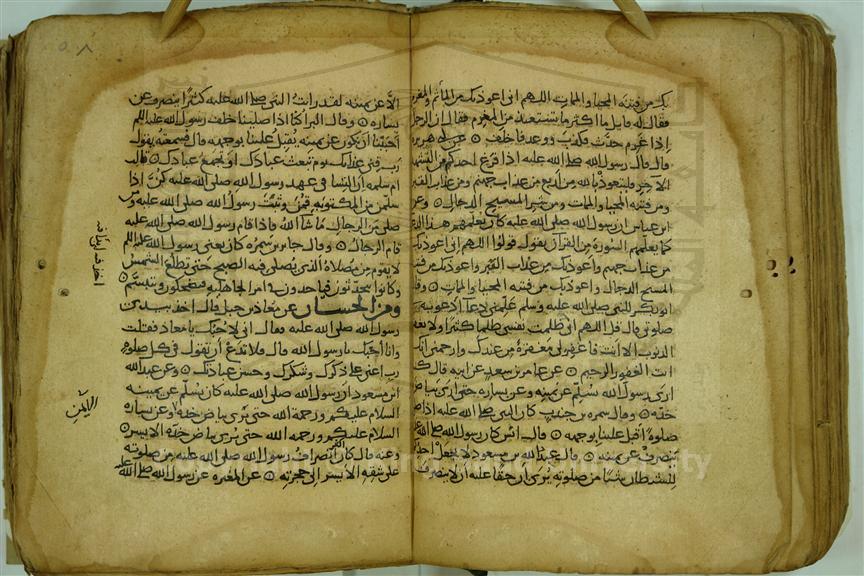 بك من فتنة المحيا والممات اللهم انى اعوذ بك من المأثم والمغرم
فقال له قايل ما اكثر ما تستعيذ من المغرم فقال ان الرجل
اذا غرم حدث فكذب ووعد فاخلف ۞ عن ابى هريره
قال قال رسول الله صلى الله عليه اذا فرغ احدكم من التشهد
الاخر فليتعوذ بالله من اربع من عذاب جهنم ومن عذاب القبر
ومن فتنة المحيا والممات ومن شر المسيح الدجال ۞ وعن
ابن عباس ان رسول الله صلى الله عليه كان يعلمهم هذا الدعا
كما يعلمهم السورة من القرآن يقول قولوا اللهم انى اعوذ بك
من عذاب جهنم واعوذ بك من عذاب القبر واعوذ بك من فتنة
المسيح الدجال واعوذ بك من فتنة المحيا والممات ۞
ابو بكر للنبى صلى الله عليه وسلم علمنى دعا ادعو به
صلوتى قال قل اللهم انى ظلمت نفسى ظلما كثيرا ولا يغفر
الذنوب الا انت فاغفر لى مغفرة من عندك وارحمنى انك
انت الغفور الرحيم ۞ عن عامر بن سعد عن ابيه قال كنت
ارى رسول الله يسلم عن يمينه وعن يساره حتى ارى بياض
خده ۞ وقال سمره بن جندب كان النبى صلى الله عليه اذا صلى
صلوة اقبل علينا بوجهه ۞ قال انس كان رسول الله صلى الله
ينصرف عن يمينه ۞ قال عبد الله بن مسعود لا يجعل احدكم
للشيطان شيئا من صلوته يرى ان حقا عليه ان لا ينصرف
الا عن يمينه لقد رايت النبى صلى الله عليه كثيرا ينصرف عن
يساره ۞ وقال البرا كنا اذا صلينا خلف رسول الله عليه
احببنا ان نكون عن يمينه يقبل علينا بوجهه قال فسمعته يقول
رب قنى عذابك يوم تبعث عبادك او تجمع عبادك ۞ قالت
ام سلمه ان النسا فى عهد رسول الله صلى الله عليه كن اذا
سلمن من المكتوبة قمن وثبت رسول الله صلى الله عليه ومن
صلى من الرجال ما شا الله فاذا قام رسول الله صلى الله عليه
قام الرجال ۞ وقال جابر بن سمره كان يعنى رسول الله عليه
لا يقوم من مصلاه الذى يصلى فيه الصبح حتى تطلع الشمس
وكانوا يتحدثون فياخذون فى امر الجاهليه فيضحكون ويتبسم ۞
ومن الحسان عن معاذ بن جبل قال اخذ بيدى
رسول الله صلى الله عليه فقال انى لاحبك يا معاذ فقلت
وانا احبك يا رسول الله قال فلا تدع ان تقول فى كل صلوة
رب اعنى على ذكرك وشكرك وحسن عبادتك ۞ وعن عبد الله
ابن مسعود ان رسول الله صلى الله عليه كان يسلم عن يمينه
السلام عليكم ورحمة الله حتى يرى بياض خده وعن يساره
السلام عليكم ورحمة الله حتى يرى بياض خده الايسر ۞
وعنه قال كان انصراف رسول الله صلى الله عليه من صلوته
على شقه الايسر الى حجرته ۞ عن المغيره عن رسول الله صلى الله عليه
الايمن